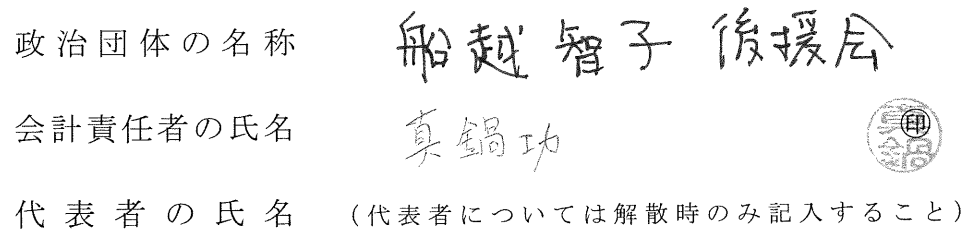 政治団体の名称 船越智子後援会
会計責任者の氏名 真鍋功 ㊞ 真鍋
代表者の氏名 (代表者については解散時のみ記入すること)